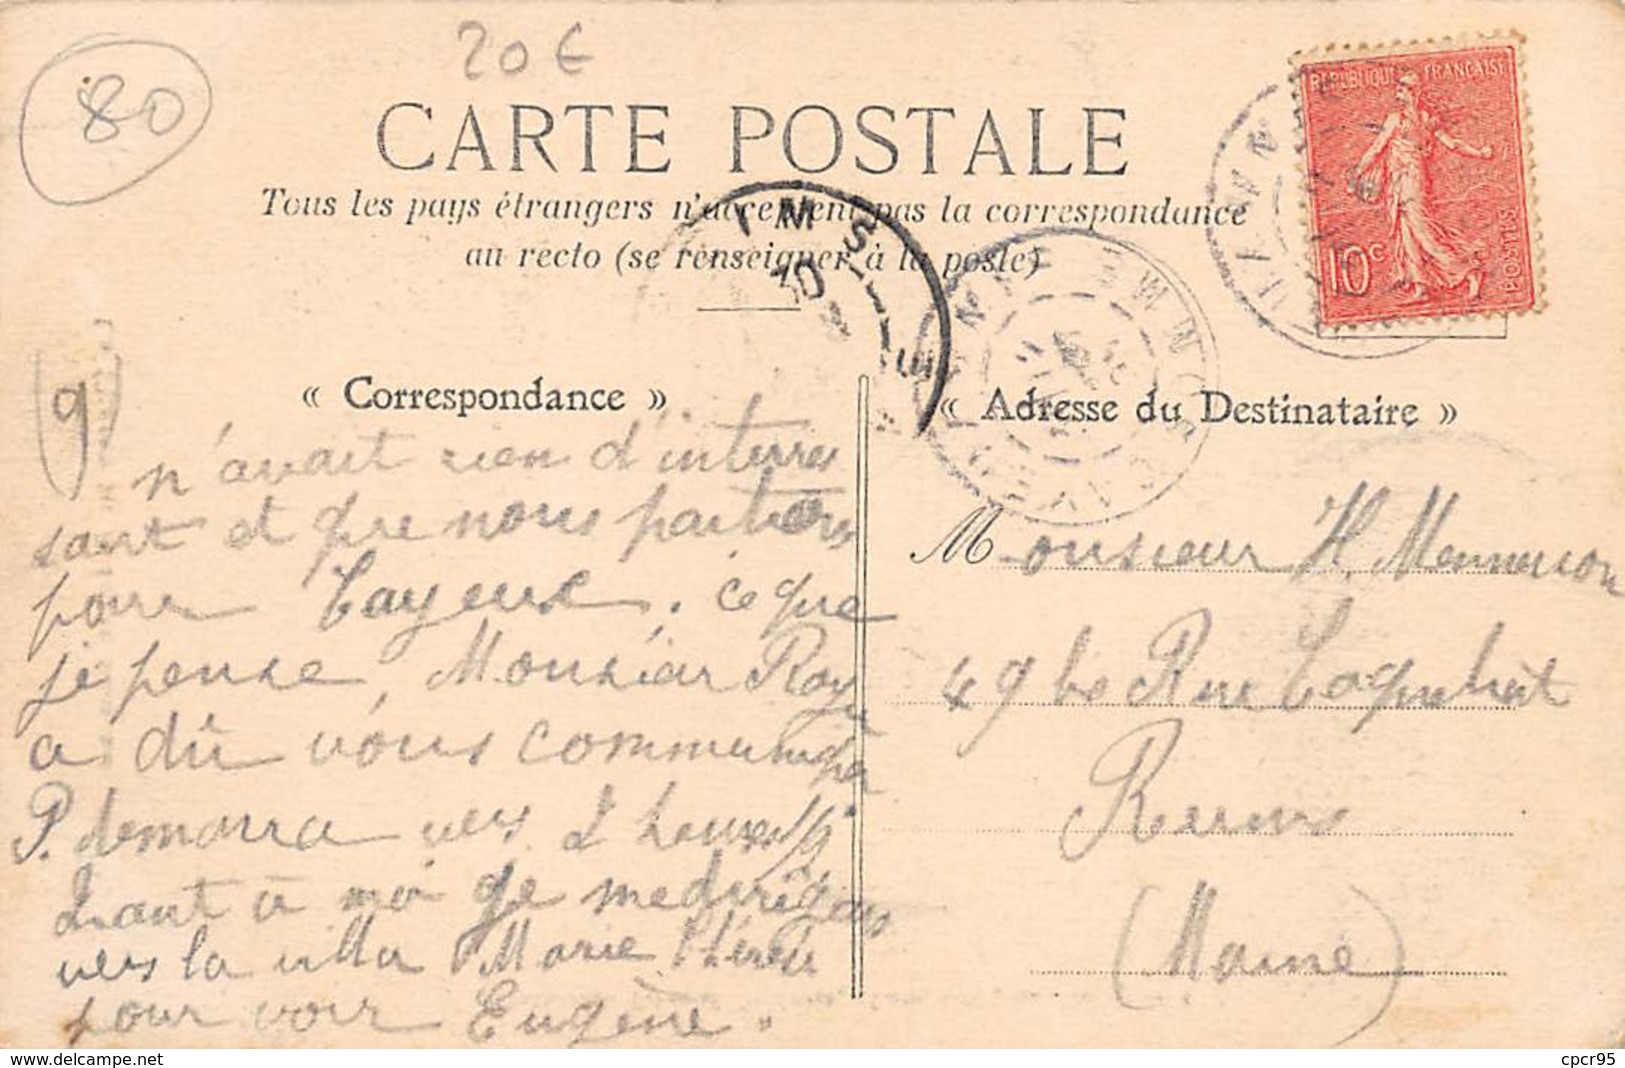 20 €
80
CARTE POSTALE
Tous les pays étrangers n'acceptent pas la correspondance
au recto (se renseigner à la poste)
REPUBLIQUE FRANÇAISE
10c
POSTES
« Correspondance »
9)
n'avait rien d'interres
sant et que nous partions
pour Cayeux. ce que
je pense, Monsieur Roy
a dû vous communiquer
P. demarra vers 2 heures 1/2
Quant à moi je me dirigeais
vers la villa Marie Thérèse
pour voir Eugène.
« Adresse du Destinataire »
Monsieur H. Mennesson
49 bis Rue Coquebert
Reims
(Marne)
SOMME
30
delcampe.net
cpcr95